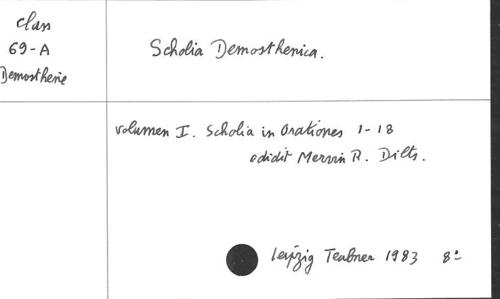 Class
69-A
Demosthene
Scholia Demosthenica.
volumen I. Scholia in Orationes 1-18
edidit Mervin R. Dilts.
Leipzig Teubner 1983 8°